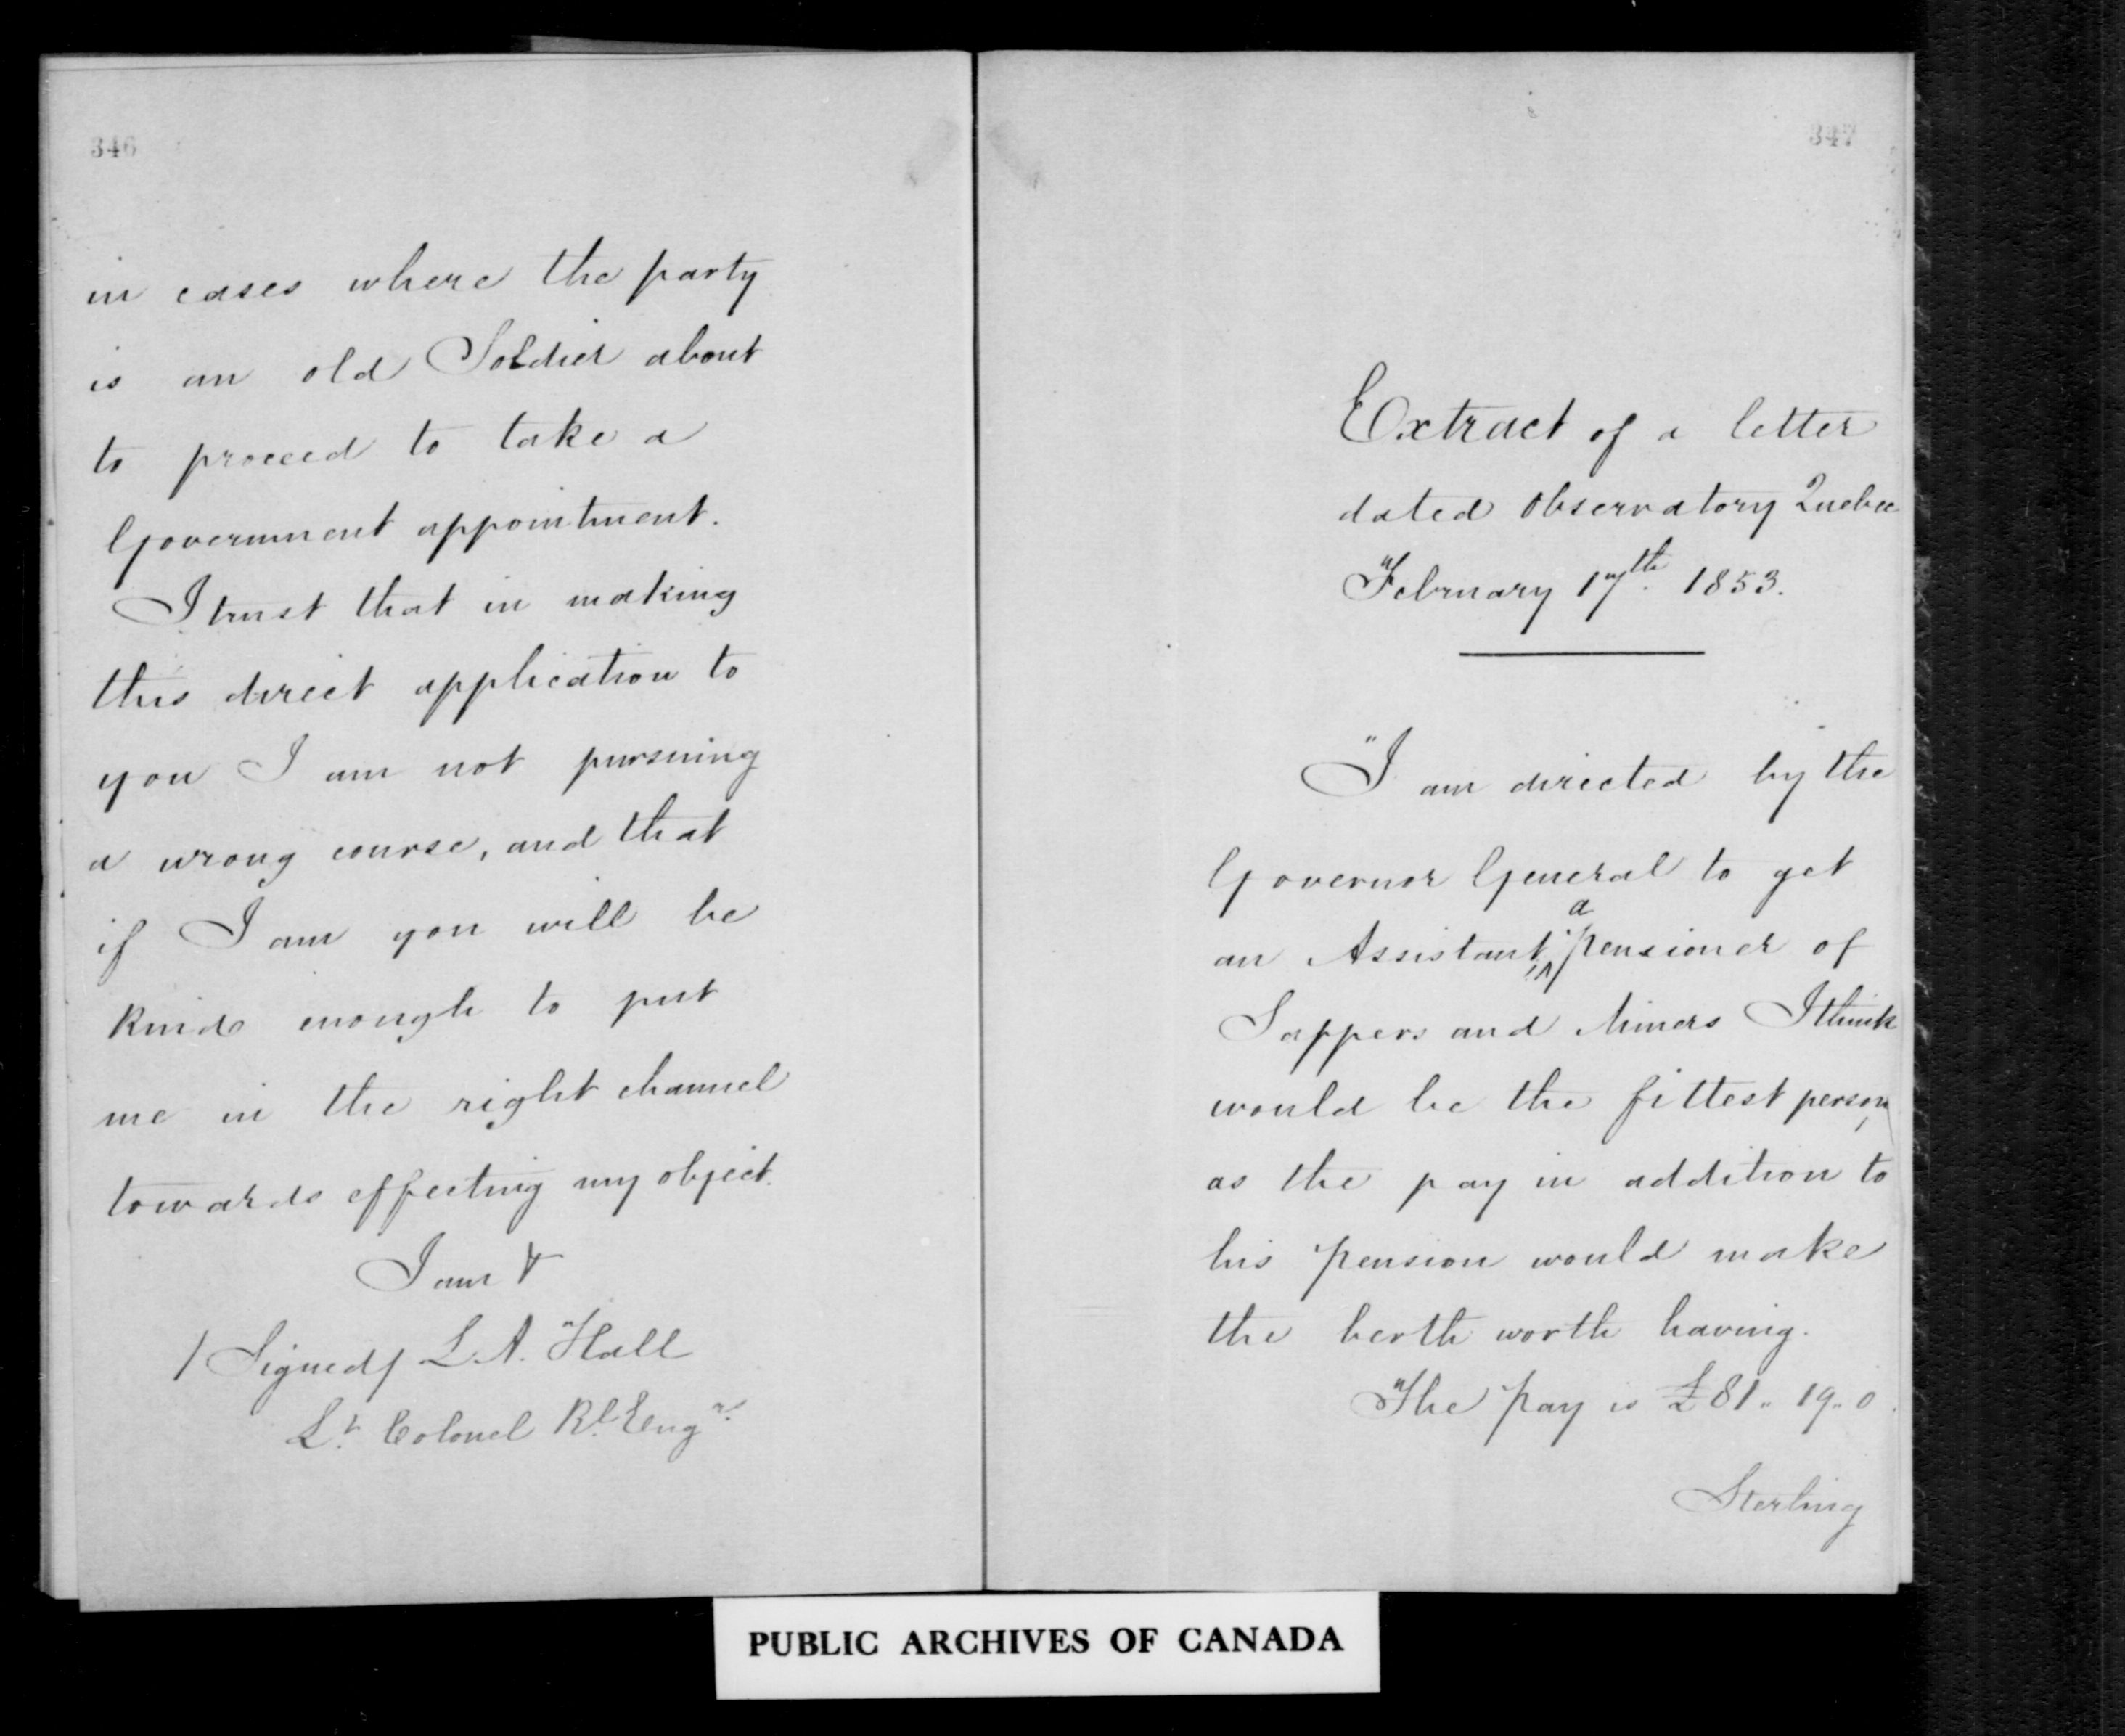 346
in cases where the party
is an old Soldier about
to proceed to take a
Government appointment.
I trust that in making
this direct application to
you I am not pursuing
a wrong course, and that
if I am you will be
kind enough to put
me in the right channel
towards effecting my object.
I am &
/Signed/ L.A. Hall
Lt. Colonel Rl. Engrs.
347
Extract of a letter
dated Observatory Quebec
February 17th. 1853.
"I am directed by the
Governor General to get
an Assistant, a pensioner of
Sappers and Miners I think
would be the fittest person,
as the pay in addition to
his pension would make
the berth worth having.
"The pay is £81.. 19.. 0.
Sterling
PUBLIC ARCHIVES OF CANADA